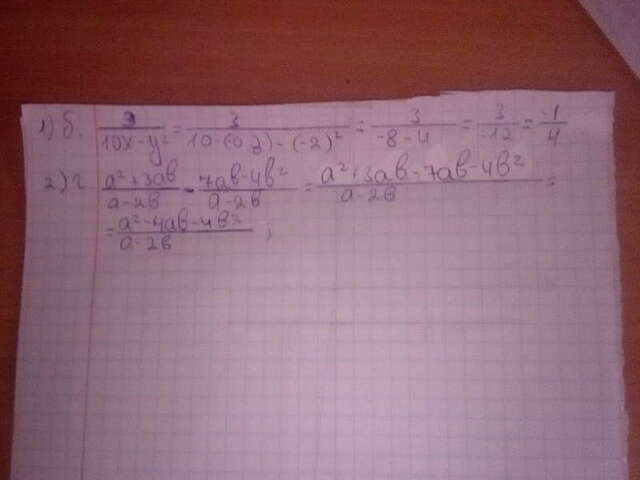 1) б. 3/(10x - y²) = 3/(10·(-0,8) - (-2)²) = 3/(-8 - 4) = 3/(-12) = -1/4
2) г. (a² + 3ab)/(a - 2b) - (7ab - 4b²)/(a - 2b) = (a² + 3ab - 7ab - 4b²)/(a - 2b) =
= (a² - 4ab - 4b²)/(a - 2b) ;